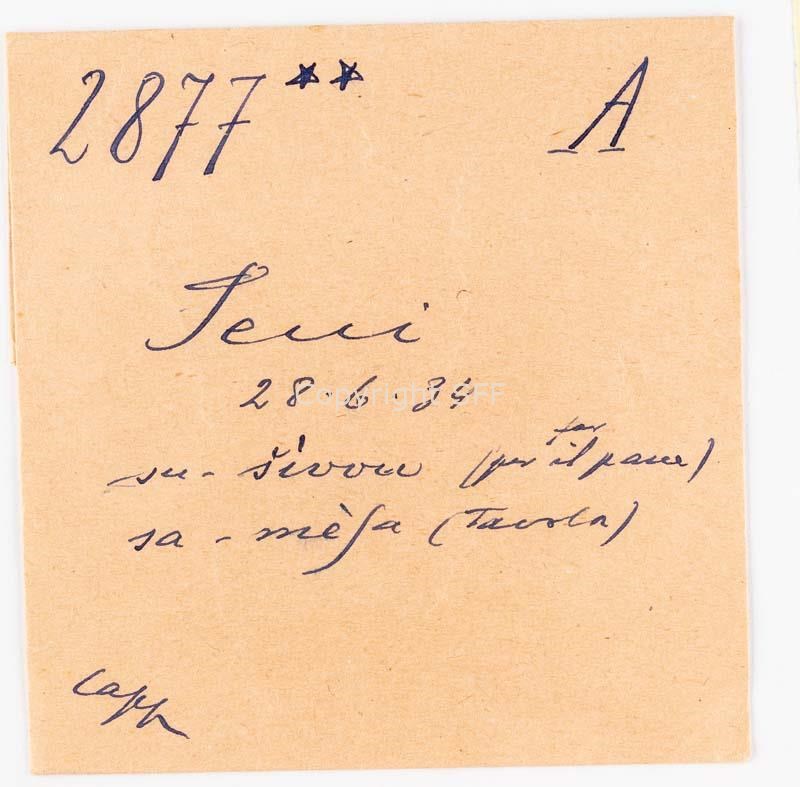 2877** A
Seui
28.6.34
su-šivou (per far il pane)
sa-mèſa (Tavola)
Capp
Copyright BFF